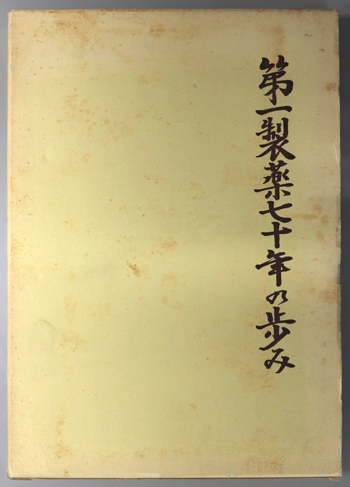 第一製薬七十年の歩み